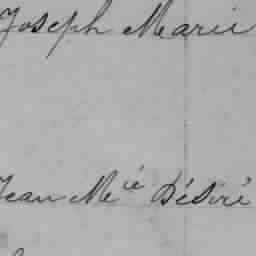 Joseph Marie
Jean Mie Désiré